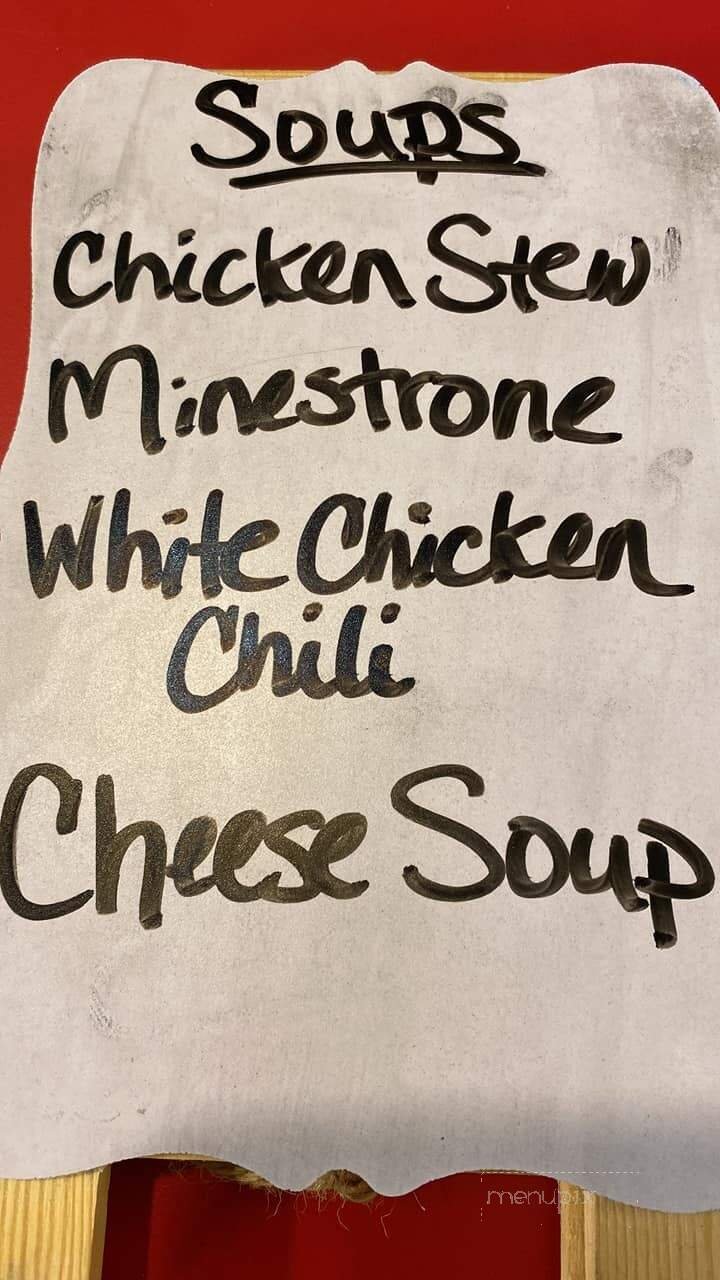 Soups
Chicken Stew
Minestrone
White Chicken
Chili
Cheese Soup